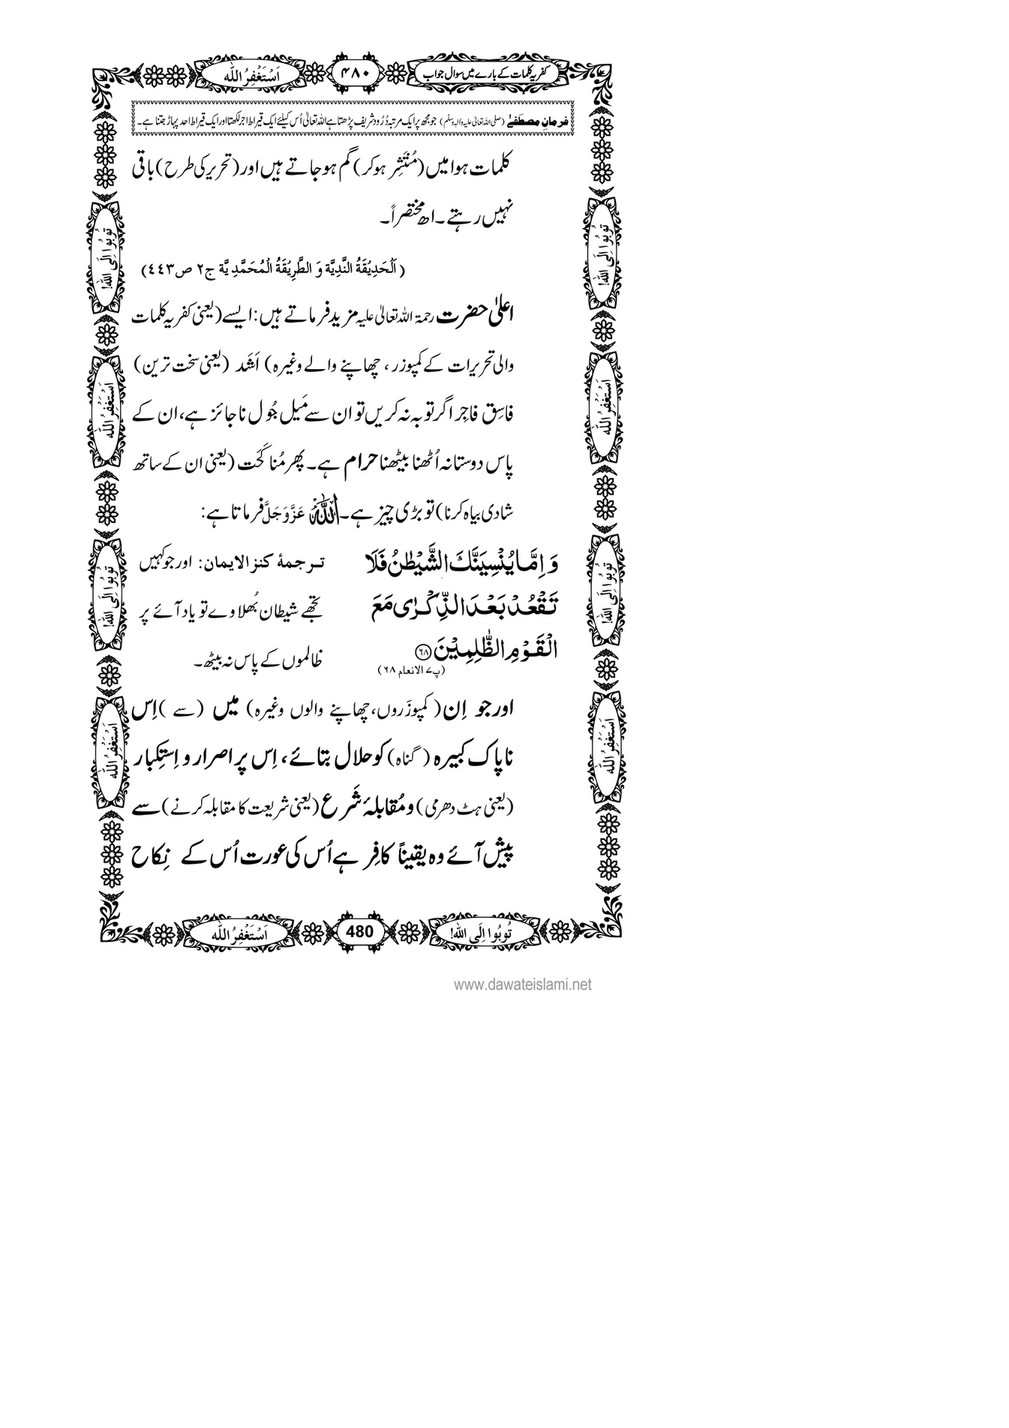 کفریہ کلمات کے بارے میں سوال جواب
۴۸۰
اَسْتَغْفِرُ اللّٰه
فرمانِ مصطفےٰ (صلی اللہ تعالیٰ علیہ والہ وسلم) جو مجھ پر ایک مرتبہ دُرُود شریف پڑھتا ہے اللہ تعالیٰ اُس کیلئے ایک قیراط اجر لکھتا اور ایک قیراط احد پہاڑ جتنا ہے۔
کلمات ہوا میں (مُنْتَشِر ہو کر) گم ہو جاتے ہیں اور (تحریر کی طرح) باقی
نہیں رہتے۔ اھ مختصراً۔
(اَلْحَدِیْقَةُ النَّدِیَّة وَ الطَّرِیْقَةُ الْمُحَمَّدِیَّة ج۲ ص۴۴۳)
اعلیٰ حضرت رحمۃ اللہ تعالیٰ علیہ مزید فرماتے ہیں: ایسے (یعنی کفریہ کلمات
والی تحریرات کے کمپوزر، چھاپنے والے وغیرہ) اَشَد (یعنی سخت ترین)
فاسِق فاجِر اگر توبہ نہ کریں تو ان سے مَیل جُول ناجائز ہے، ان کے
پاس دوستانہ اُٹھنا بیٹھنا حرام ہے۔ پھر مُناکَحَت (یعنی ان کے ساتھ
شادی بیاہ کرنا) تو بڑی چیز ہے۔ اللّٰہ عَزَّوَجَلَّ فرماتا ہے:
وَ اِمَّا یُنْسِیَنَّكَ الشَّیْطٰنُ فَلَا
تَقْعُدْ بَعْدَ الذِّكْرٰى مَعَ
الْقَوْمِ الظّٰلِمِیْنَ ﴿۶۸﴾
(پ۷ الانعام ۶۸)
ترجمۂ کنز الایمان: اور جو کہیں
تجھے شیطان بُھلا وے تو یاد آئے پر
ظالموں کے پاس نہ بیٹھ۔
اور جو اِن (کمپوزروں، چھاپنے والوں وغیرہ) میں (سے) اِس
ناپاک کبیرہ (گناہ) کو حلال بتائے، اِس پر اصرار و اِستِکبار
(یعنی ہٹ دھرمی) و مُقابلۂ شَرع (یعنی شریعت کا مقابلہ کرنے) سے
پیش آئے وہ یقیناً کافِر ہے اُس کی عورت اُس کے نِکاح
تُوبُوا اِلَى اللّٰه!
اَسْتَغْفِرُ اللّٰه
تُوبُوا اِلَى اللّٰه!
اَسْتَغْفِرُ اللّٰه
تُوبُوا اِلَى اللّٰه!
اَسْتَغْفِرُ اللّٰه
تُوبُوا اِلَى اللّٰه!
اَسْتَغْفِرُ اللّٰه
تُوبُوا اِلَى اللّٰه!
480
اَسْتَغْفِرُ اللّٰه
www.dawateislami.net